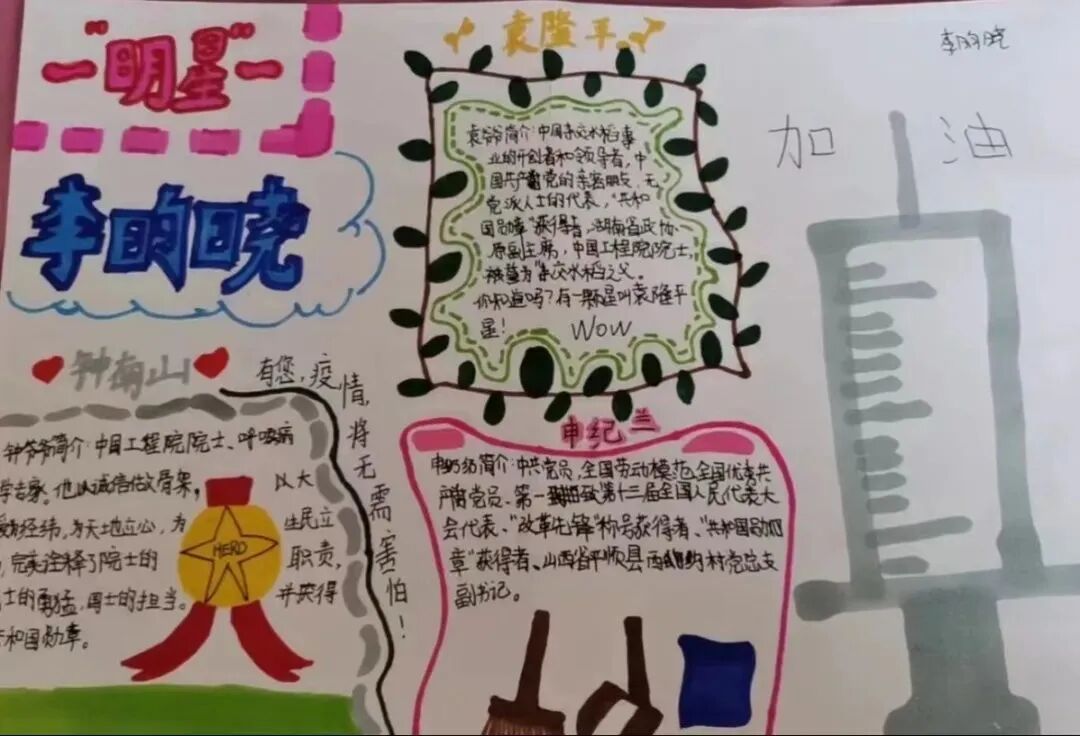 "明星"
李昀晓
袁隆平
李昀晓
加油
袁爷爷简介:中国杂交水稻事
业的开创者和领导者,中
国共产党的亲密朋友,无
党派人士的代表,"共和
国勋章"获得者,湖南省政协
原副主席,中国工程院院士,
被誉为"杂交水稻之父。
你知道吗?有一颗星叫袁隆平
星!
Wow
钟南山
有您,疫情,将无需害怕!
钟爷爷简介:中国工程院院士、呼吸病
学专家。他以诚信做骨架,以大
经纬,为天地立心,为生民立
,完美诠释了院士的职责,
士的勇猛,国士的担当。并获得
和国勋章。
HERO
申纪兰
申奶奶简介:中共党员,全国劳动模范,全国优秀共
产党员、第一到第十三届全国人民代表大
会代表、"改革先锋"称号获得者、"共和国勋
章"获得者、山西省平顺县西沟村党总支
副书记。